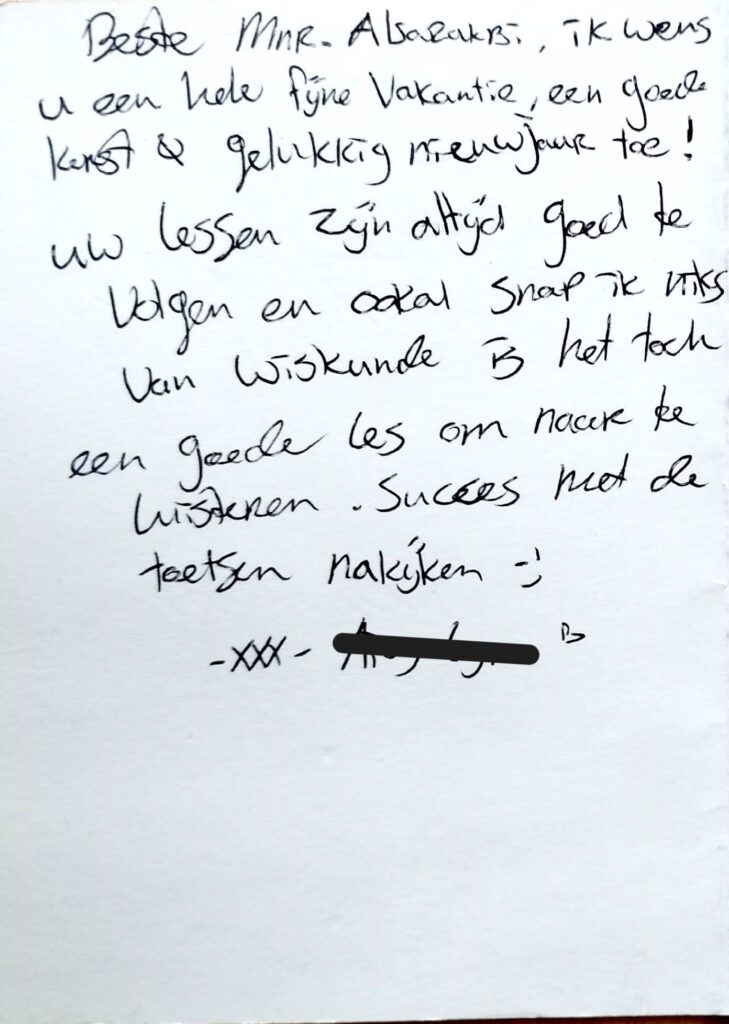 Beste Mnr. Alsarakbi, ik wens
u een hele fijne vakantie, een goede
kerst & gelukkig nieuwjaar toe!
uw lessen zijn altijd goed te
volgen en ookal snap ik niks
van wiskunde is het toch
een goede les om naar te
luisteren. Succes met de
toetsen nakijken :)
-xxx-